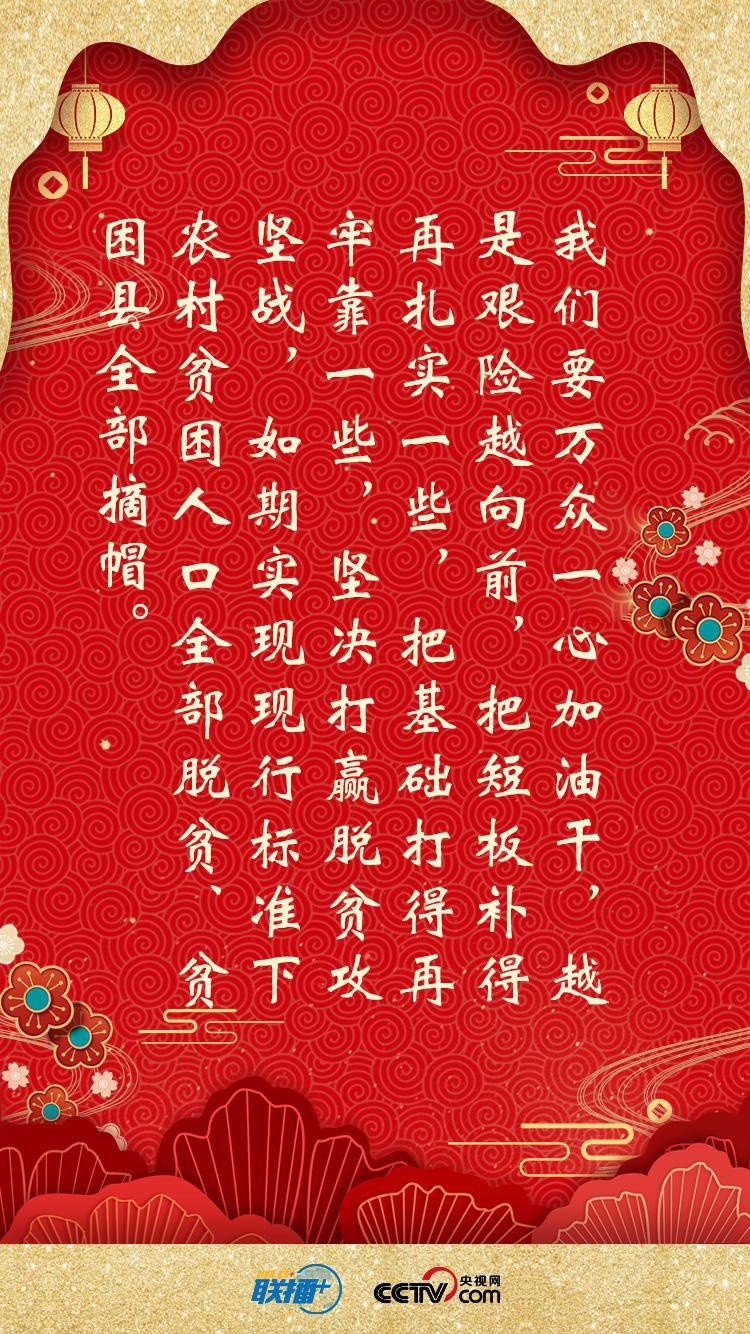 我们要万众一心加油干，越
是艰险越向前，把短板补得
再扎实一些，把基础打得再
牢靠一些，坚决打赢脱贫攻
坚战，如期实现现行标准下
农村贫困人口全部脱贫、贫
困县全部摘帽。
联播+
CCTV央视网com